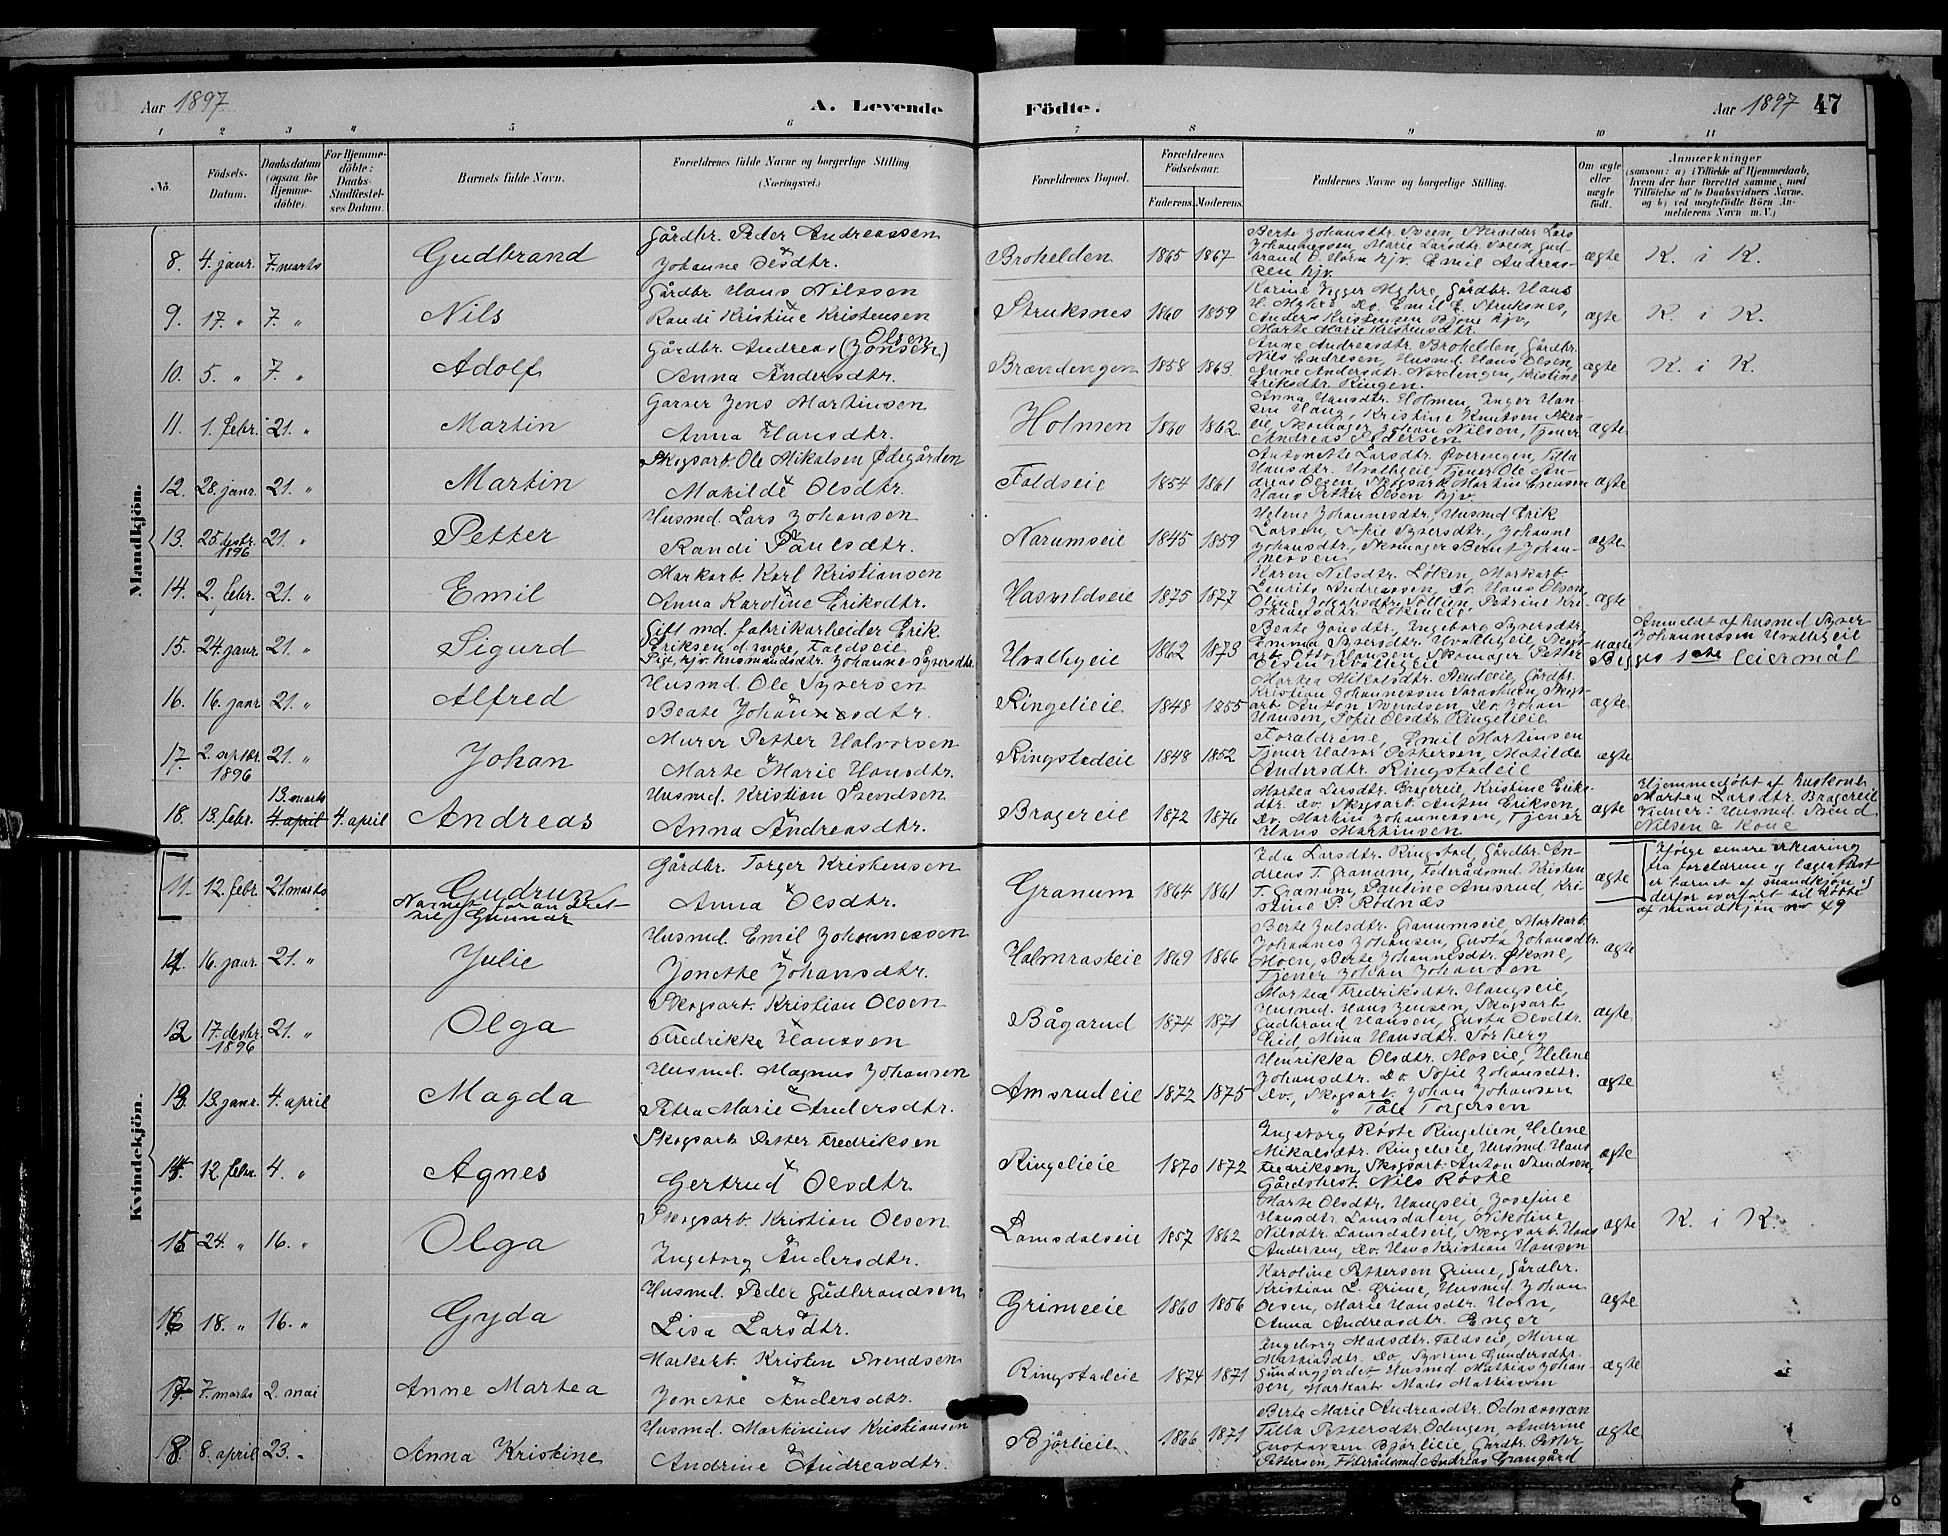 Aar 1897 A. Levende Födte. Aar 1897 47
1 2 3 4 5 6 7 8 9 10 11
No. Födsels-Datum. Daabsdatum (ogsaa for Hjemme-döbte). For Hjemme-döbte: Daabs-Stadfæstel-ses Datum. Barnets fulde Navn. Forældrenes fulde Navne og borgerlige Stilling (Næringsvei.) Forældrenes Bopæl. Forældrenes Födselsaar. Faderens. Moderens. Faddernes Navne og borgerlige Stilling. Om ægte eller uægte födt. Anmærkninger (saasom: a) i Tilfælde af Hjemmedaab, hvem der har forrettet samme, med Tilföielse af to Daabsvidners Navne, og b) ved uægtefödte Börn An-melderens Navn m. V.)
Mandkjön.
8. 4. janr. 7. marts Gudbrand Gårdbr. Peder Andreassen
Johanne Olsdtr. Brohelden 1865 1867 Berte Johansdtr. Sveen, Skrædder Lars
Johannessen, Marie Larsdtr. Sveen, Gud-
brand O. Horn hjv. Emil Andreas-
sen hjv. ægte K. i K.
9. 17. " 7. " Nils Gårdbr. Hans Nilssen
Randi Kristine Kristensen Struksnes 1860 1859 Karine Myhre, Gårdbr. Hans
H. Myhre, Do. Emil E. Struksnes,
Anders Kristensen Bjone hjv,
Marte Marie Kristensdtr. ægte K. i K.
10. 5. " 7. " Adolf Gårdbr. Andreas (Jonsen) Olsen
Anna Andersdtr. Brændengen 1858 1863. Anne Andreasdtr. Brohelden, Gårdbr.
Nils Endresen, Husmd. Hans Olsen,
Anne Andersdtr. Nordengen, Kristine
Eriksdtr. Ringen. ægte K. i K.
11. 1. febr. 21. " Martin Garver Jens Martinsen
Anna Hansdtr. Holmen 1860 1862. Anna Hansdtr. Holmen, Inger Han-
sen Haug, Kristine Knutsen
Skomager Johan Nilsen, Tjener
Andreas Pedersen ægte
12. 28. janr. 21. " Martin Skogsarb. Ole Mikalsen Ødegården
Mathilde Olsdtr. Faldseie 1854 1861 Antonette Larsdtr. Øverengen, Tilla
Hansdtr. Hvalbyeie, Tjener Ole An-
dreas Olsen, Skogsarb. Martin
Hans Petter Olsen hjv. ægte
13. 25 desbr. 1896 21. " Petter Husmd. Lars Johansen
Randi Paulsdtr. Narumseie 1845 1859 Helene Johannesdtr, Husmd. Erik
Larsen, Sofie Syversdtr, Johanne
Johansdtr., Skomager Bernt Johan-
nessen ægte
14. 2. febr. 21. " Emil Markarb. Karl Kristiansen
Anna Karoline Eriksdtr. Hasvoldseie 1875 1877 Karen Nilsdtr. Løken, Markarb.
Laurits Andreassen, Do. Hans Olsen,
Oline Johansdtr. Sollien, Petrine Kri-
stiansdtr. Løkeneie ægte
15. 24. janr. 21. " Sigurd Gift md. fabrikarbeider Erik
Eriksen d. yngre, Faldseie
Pige hjv. husmandsdtr. Johanne Syversdtr. Hvalbyeie 1862 1873 Beate Jonsdtr, Ingeborg Syversdtr
Emma Syversdtr. Hvalbyeie, Skogs-
arb. Otto Hansen, Skomager Petter
Olsen Hvalbyeie uægte Anmeldt af husmd Syver
Johannessen Hvalbyeie
Begges 1ste leiermål
16. 16. janr 21. " Alfred Husmd. Ole Syversen
Beate Johansdtr. Ringelieie 1848 1855 Martea Mikalsdtr. Gårdbr.
Kristian Johannessen Skogs-
arb. Anton Svendsen, Do. Johan
Hansen, Sofie Olsdtr. Ringelieie ægte
17. 2. septbr. 1896 21. " Johan Murer Petter Halvorsen
Marte Marie Hansdtr. Ringstadeie 1848 1852 Forældrene, Emil Martinsen
Tjener Halvor Pettersen, Matilde
Andersdtr. Ringstadeie ægte
18. 13. febr. 13. marts 4. april 4. april Andreas Husmd. Kristian Svendsen
Anna Andreasdtr. Bragereie 1872 1876 Martea Larsdtr. Bragereie, Kristine Eriks-
dtr. Do. Skogsarb. Anton Eriksen,
Do. Martin Johannessen, Tjener
Hans Martinsen ægte Hjemmedöbt af huskone
Martea Larsdtr. Bragereie
Vidner: Husmd. Svend
Nilsen & Kone
Kvindekjön.
11. 12. febr 21 marts Gudrun
Navnet forandret
til Gunnar Gårdbr. Torger Kristensen
Anna Olsdtr. Granum 1864 1861 Ida Larsdtr. Ringstad, Gårdbr. An-
dreas T. Granum, Föderådsmd. Kristen
T. Granum, Pauline Amsrud Kri-
stine P. Rödnæs ægte Ifölge senere erklæring
fra forældrene og lægeattest
er barnet af mandkjøn og
derfor overfört til rette
af mandkjön no 49
12. 16. janr. 21. " Julie Husmd. Emil Johannessen
Jonette Johansdtr. Holmrasteie 1869 1866 Berte Julsdtr. Granumseie, Markarb.
Johannes Johansen, Gusta Johansdtr.
Moen, Berte Johannesdtr. Øksne,
Tjener Johan Johansen ægte
12 17. desbr. 1896 21. " Olga Skogsarb. Kristian Olsen
Fredrikke Hanssen Bågarud 1874 1871 Martea Fredriksdtr. Haugseie,
Husmd. Hans Jensen, Skogsarb.
Gudbrand Hansen, Gusta Olsdtr.
Eid, Mina Hansdtr. Sørberg ægte
13. 13. janr. 4. april Magda Husmd. Magnus Johansen
Petra Marie Andersdtr. Amsrudeie 1872 1875 Henrikka Olsdtr. Moseie, Helene
Johansdtr. Do. Sofie Johansdtr.
Do., Skogsarb. Johan Johansen
" Tåle Torgersen ægte
14. 12 febr. 4. " Agnes Skogsarb. Petter Fredriksen
Gertrud Olsdtr. Ringelieie 1870 1872 Ingeborg Röste Ringelien, Helene
Mikalsdtr. Ringelieie, Husmd. Hans
Fredriksen, Skogsarb. Anton Svendsen,
Gårdbrest. Nils Röste ægte
15 24. " 16. " Olga Skogsarb. Kristian Olsen
Ingeborg Andersdtr. Lamsdalseie 1857 1862 Marte Olsdtr. Haugseie, Josefine
Hansdtr. Lamsdalen, Nikoline
Nilsdtr. Lamsdalseie, Skogsarb. Hans
Andersen, Do. Hans Kristian Hansen ægte K. i K.
16 18. " 16. " Gyda Husmd. Peder Gudbrandsen
Lisa Larsdtr. Grimeeie 1860 1856 Karoline Pettersen Grime, Gårdbr.
Kristian L. Grime, Husmd. Johan
Olsen, Marie Hansdtr. Horn,
Anna Andreasdtr. Enger ægte
17 7. marts 2. mai Anne Martea Markarb. Kristen Svendsen
Jonette Andersdtr. Ringstadeie 1874 1871 Ingeborg Madsdtr. Faldseie, Mina
Mathiasdtr. Do. Syverine Gundersdtr.
Gundergjordet, Husmd Mathias Johan-
sen, Markarb. Mads Mathiasen ægte
18. 8. april 23. " Anna Kristine Husmd. Martinius Kristiansen
Andrine Andreasdtr. Bjørlieie 1866 1871 Berte Marie Andreasdtr. Odnæssveen
Tilla Pettersdtr. Odengen, Andrine
Gustavsen Bjørlieie, Gårdbr. Petter
Pettersen, Föderådsmd. Andreas Grangård ægte